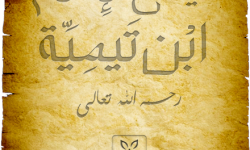 ابْن تَيمِيَّة
رحمه الله تعالى